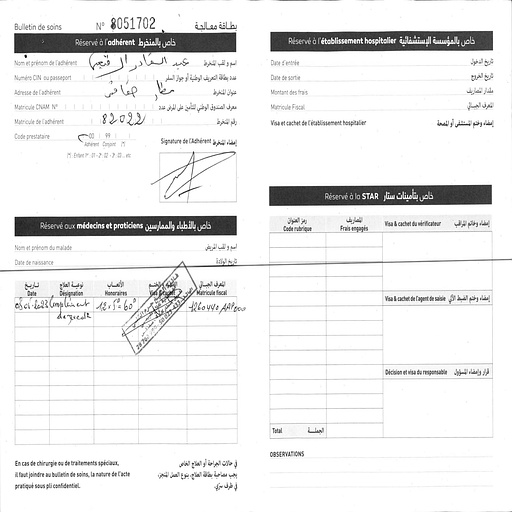 Bulletin de soins N° 8051702 بطاقة معالجة
Réservé à l'adhérent خاص بالمنخرط
Nom et prénom de l'adhérent عبد القادر اسم و لقب المنخرط
Numéro CIN ou passeport عدد بطاقة التعريف الوطنية أو جواز السفر
Adresse de l'adhérent مطار صفاقس عنوان المنخرط
Matricule CNAM N° معرف الصندوق الوطني للتأمين على المرض عدد
Matricule de l'adhérent 82022 رقم المنخرط
Code prestataire 00 99
Adhérent Conjoint (*)
(*) : Enfant 1er : 01 - 2e : 02 - 3e : 03 ... etc
Signature de l'Adhérent إمضاء المنخرط
Réservé aux médecins et praticiens خاص بالأطباء والممارسين
Nom et prénom du malade اسم و لقب المريض
Date de naissance تاريخ الولادة
تاريخ نوعية العلاج الأتعاب الإمضاء والختم المعرف الجبائي
Date Désignation Honoraires Visa & cachet Matricule fiscal
Complément 12 x 5 = 60
En cas de chirurgie ou de traitements spéciaux,
il faut joindre au bulletin de soins, la nature de l'acte
pratiqué sous pli confidentiel.
في حالات الجراحة أو العلاج الخاص
يجب مصاحبة بطاقة العلاج، بنوع العمل المنجز،
في ظرف سري.
Réservé à l'établissement hospitalier خاص بالمؤسسة الإستشفائية
Date d'entrée تاريخ الدخول
Date de sortie تاريخ الخروج
Montant des frais مقدار المصاريف
Matricule Fiscal المعرف الجبائي
Visa et cachet de l'établissement hospitalier إمضاء وختم المستشفى أو المصحة
Réservé à la STAR خاص بتأمينات ستار
رمز العنوان المصاريف
Code rubrique Frais engagés
Visa & cachet du vérificateur إمضاء وخاتم المراقب
Visa & cachet de l'agent de saisie إمضاء وختم الضبط الآلي
Décision et visa du responsable قرار وإمضاء المسؤول
Total الجملة
OBSERVATIONS